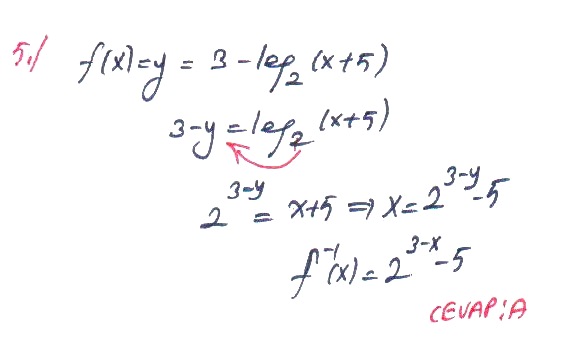 5./ f(x)=y = 3-log₂(x+5)
3-y=log₂(x+5)
2³⁻ʸ = x+5 ⇒ x=2³⁻ʸ-5
f⁻¹(x)=2³⁻ˣ-5
CEVAP:A